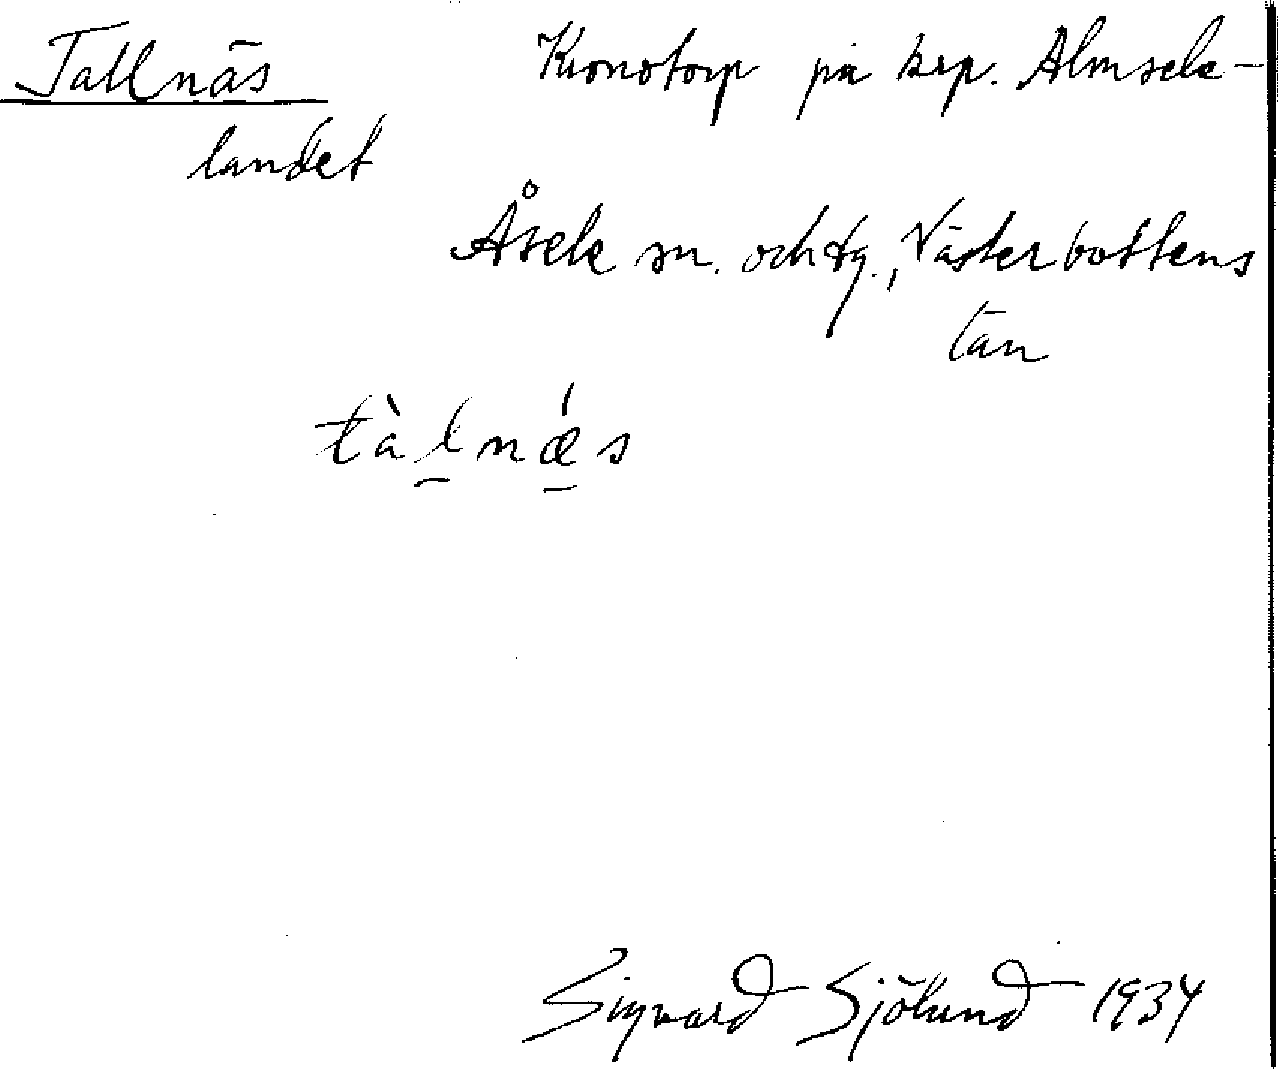 Tallnäs Kronotorp på krp. Almsele-
landet
Åsele sn. och tg., Västerbottens
län
tàlnǽs
Sigvard Sjölund 1934